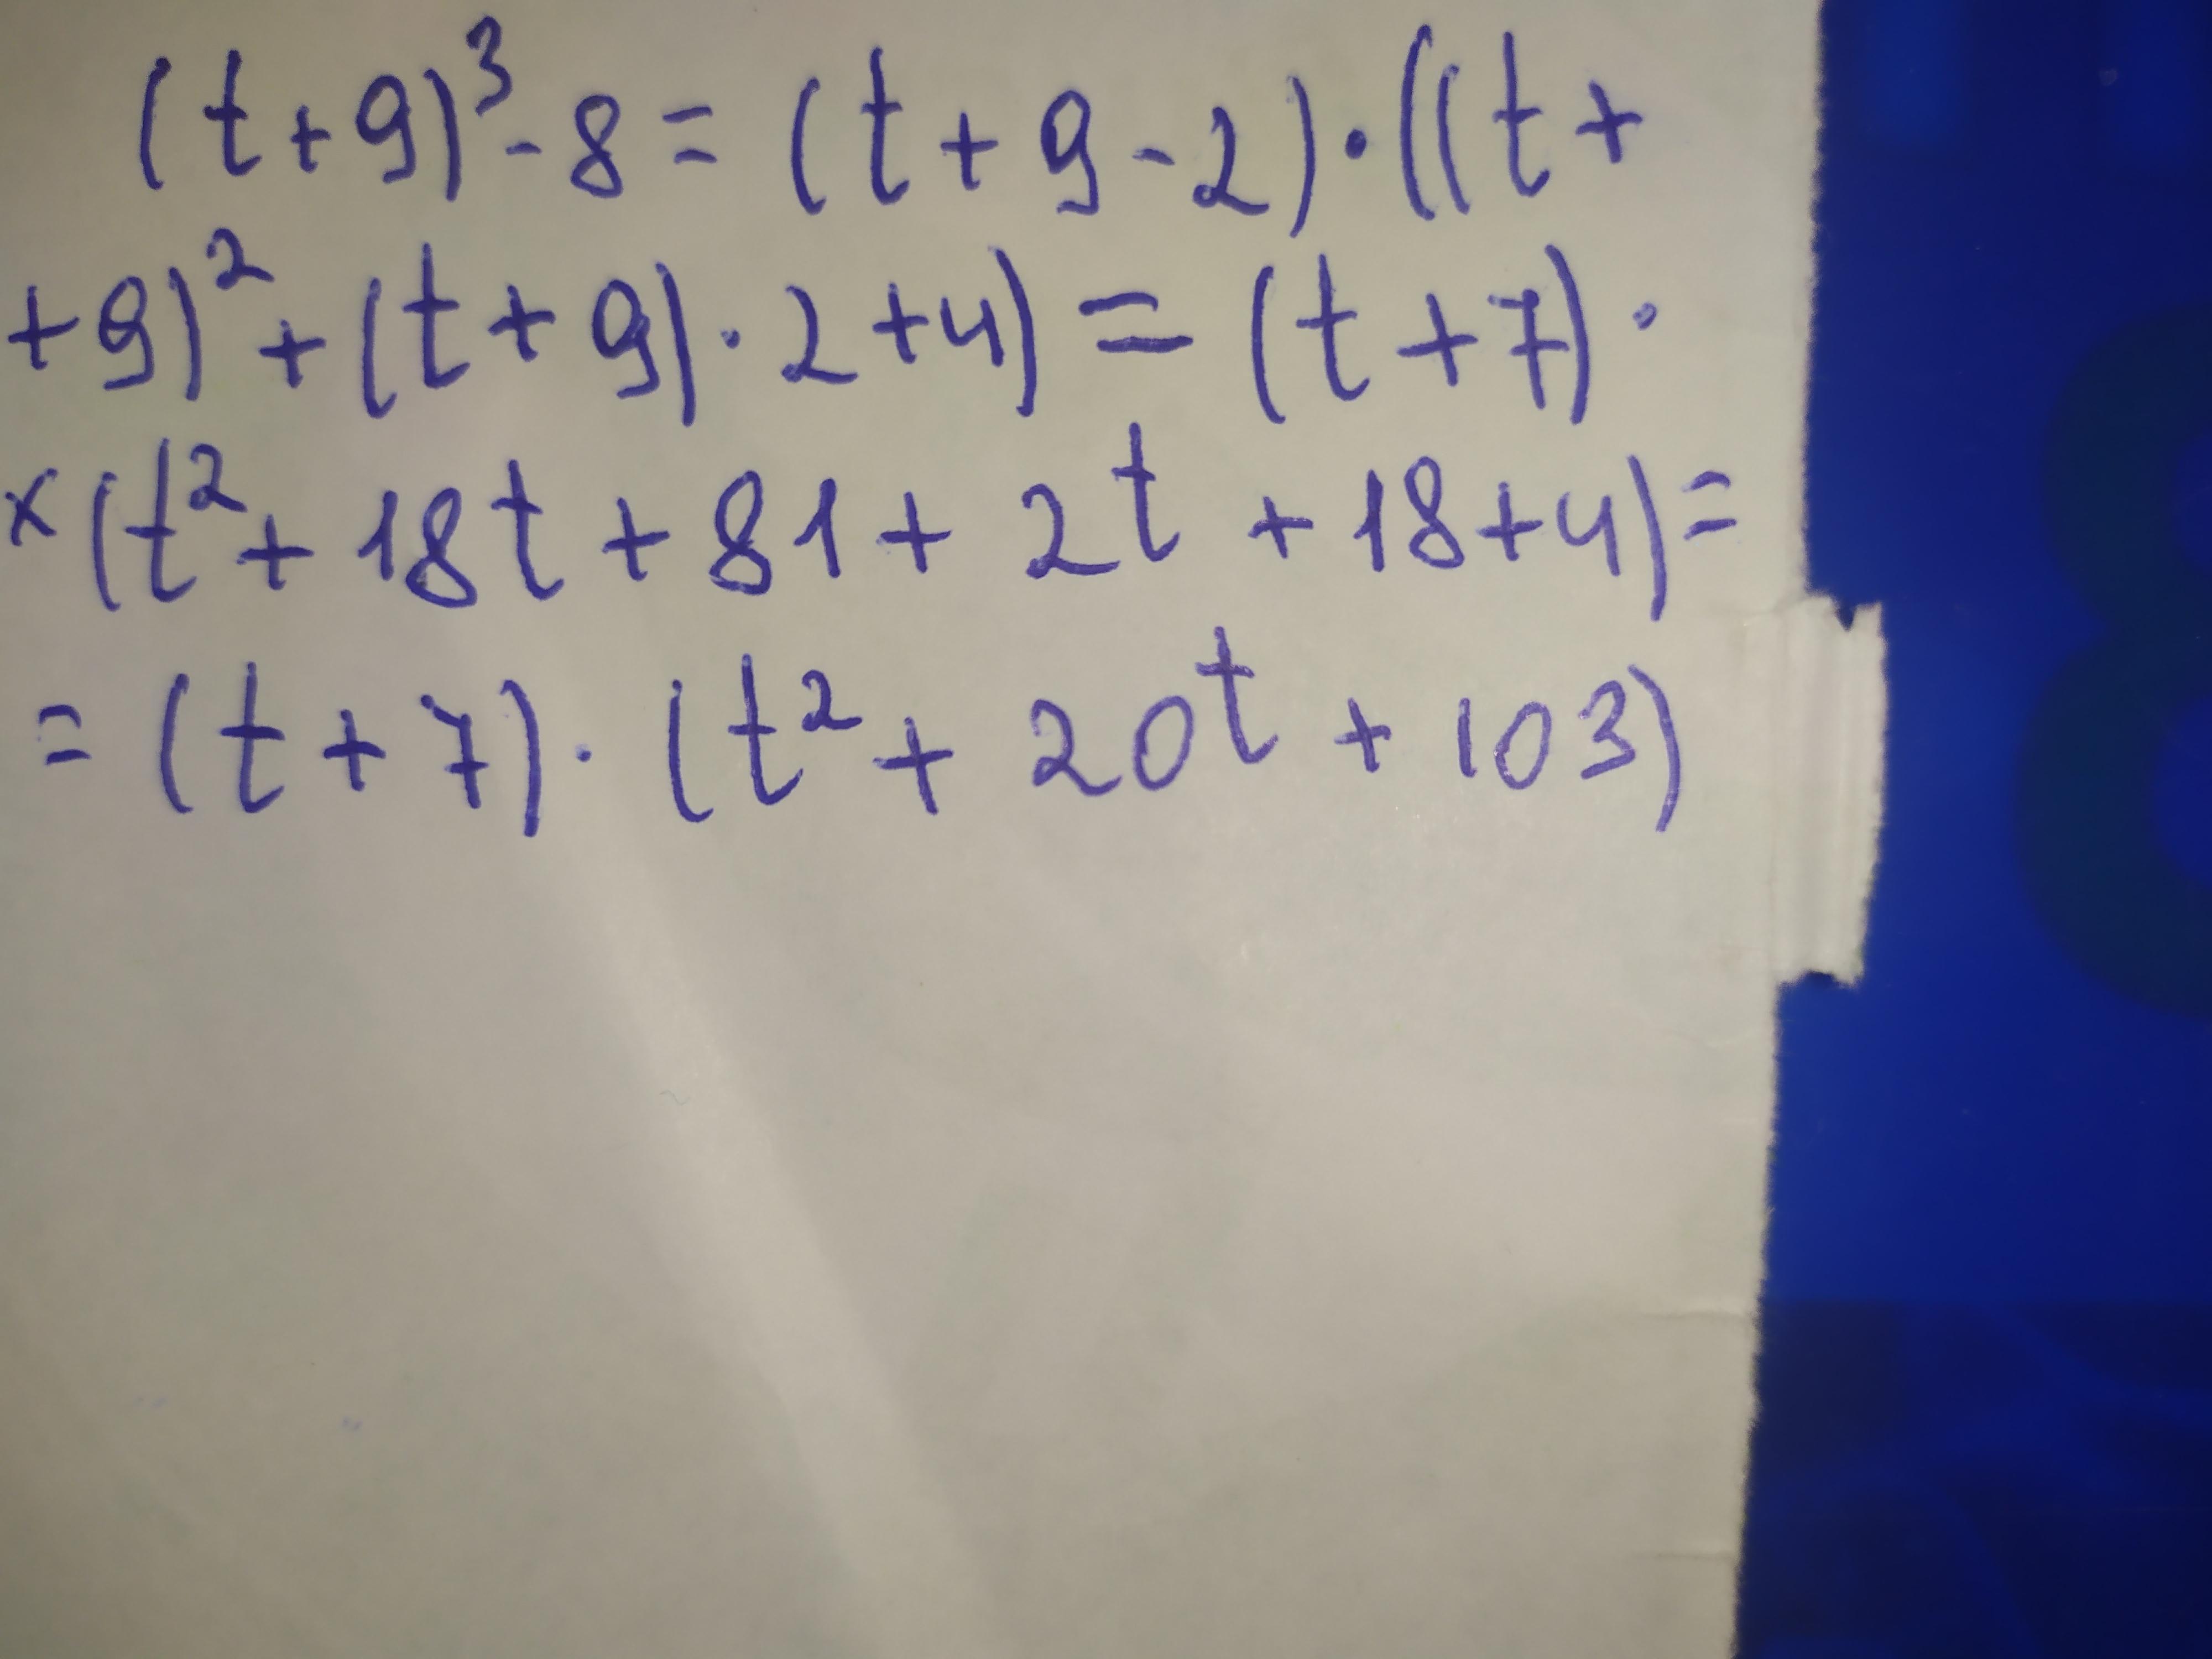 (t+9)³-8=(t+9-2)·((t+
+9)²+(t+9)·2+4)=(t+7)·
×(t²+18t+81+2t+18+4)=
=(t+7)·(t²+20t+103)